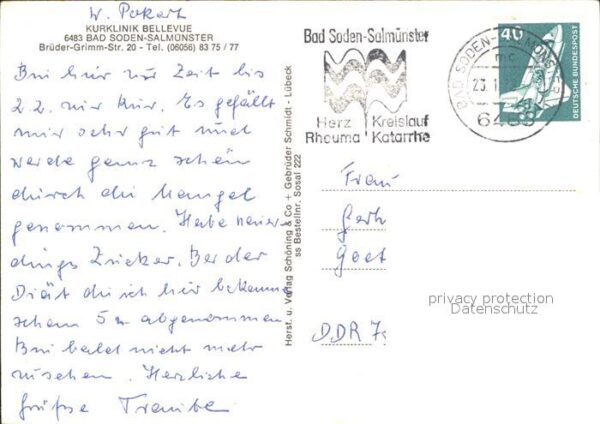 W. Pokart
KURKLINIK BELLEVUE
6483 BAD SODEN-SALMÜNSTER
Brüder-Grimm-Str. 20 - Tel. (06056) 83 75 / 77
Bin hier zur Zeit bis
2.2. zur Kur. Es gefällt
mir sehr gut und
werde ganz schön
durch die Mangel
genommen. Habe neuer-
dings Zucker. Bei der
Diät die ich hier bekomme
schon 5 abgenommen
Bin bald nicht mehr
zu sehen. Herzliche
Grüße
Herst. u. Verlag Schöning & Co + Gebrüder Schmidt - Lübeck
ss Bestellnr. Sosal 222
Bad Soden-Salmünster
Herz Kreislauf
Rheuma Katarrhe
BAD SODEN-SALMÜNSTER
mc
23.1
6483
40
DEUTSCHE BUNDESPOST
Frau
Gerh
Goet
DDR 7
privacy protection
Datenschutz